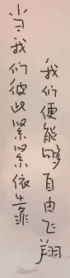 当我们彼此紧紧依靠
我们便能够自由飞翔